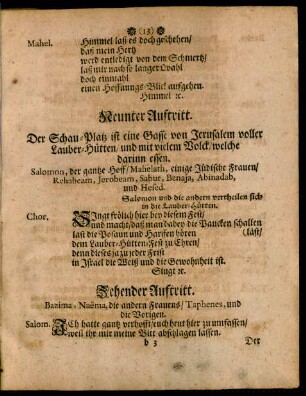 (13)
Mahel. Himmel laß es doch geschehen/
daß mein Hertz
werd entlediget von dem Schmertz/
laß mir nach so langer Qvahl
doch einmahl
einen Hoffnungs-Blick aufgehen.
Himmel ꝛc.
Neunter Auftritt.
Der Schau-Platz ist eine Gasse von Jerusalem voller
Lauber-Hütten/ und mit vielem Volck/ welche
darinn essen.
Salomon, der gantze Hoff/ Mahelath, einige Jüdische Frauen/
Rehabeam, Jerobeam, Sabut, Benaja, Abinadab,
und Hesed.
Salomon und die andern vertheilen sich
in die Lauber-Hütten.
Chor. SIngt frölich hier bey diesem Fest/
und macht/ daß man dabey die Paucken schallen
last die Posaun und Harffen hören (läst/
dem Lauber-Hütten-Fest zu Ehren/
denn dieses ja zu jeder Frist
in Israel die Weiß und die Gewohnheit ist.
Singt ꝛc.
Zehender Auftritt.
Bazima, Naëma, die andern Frauens/ Taphenes, und
die Vorigen.
Salom. ICh hatte gantz verhofft/ euch heut hier zu umfassen/
weil ihr mit meine Bitt abschlagen lassen.
b 3 Der